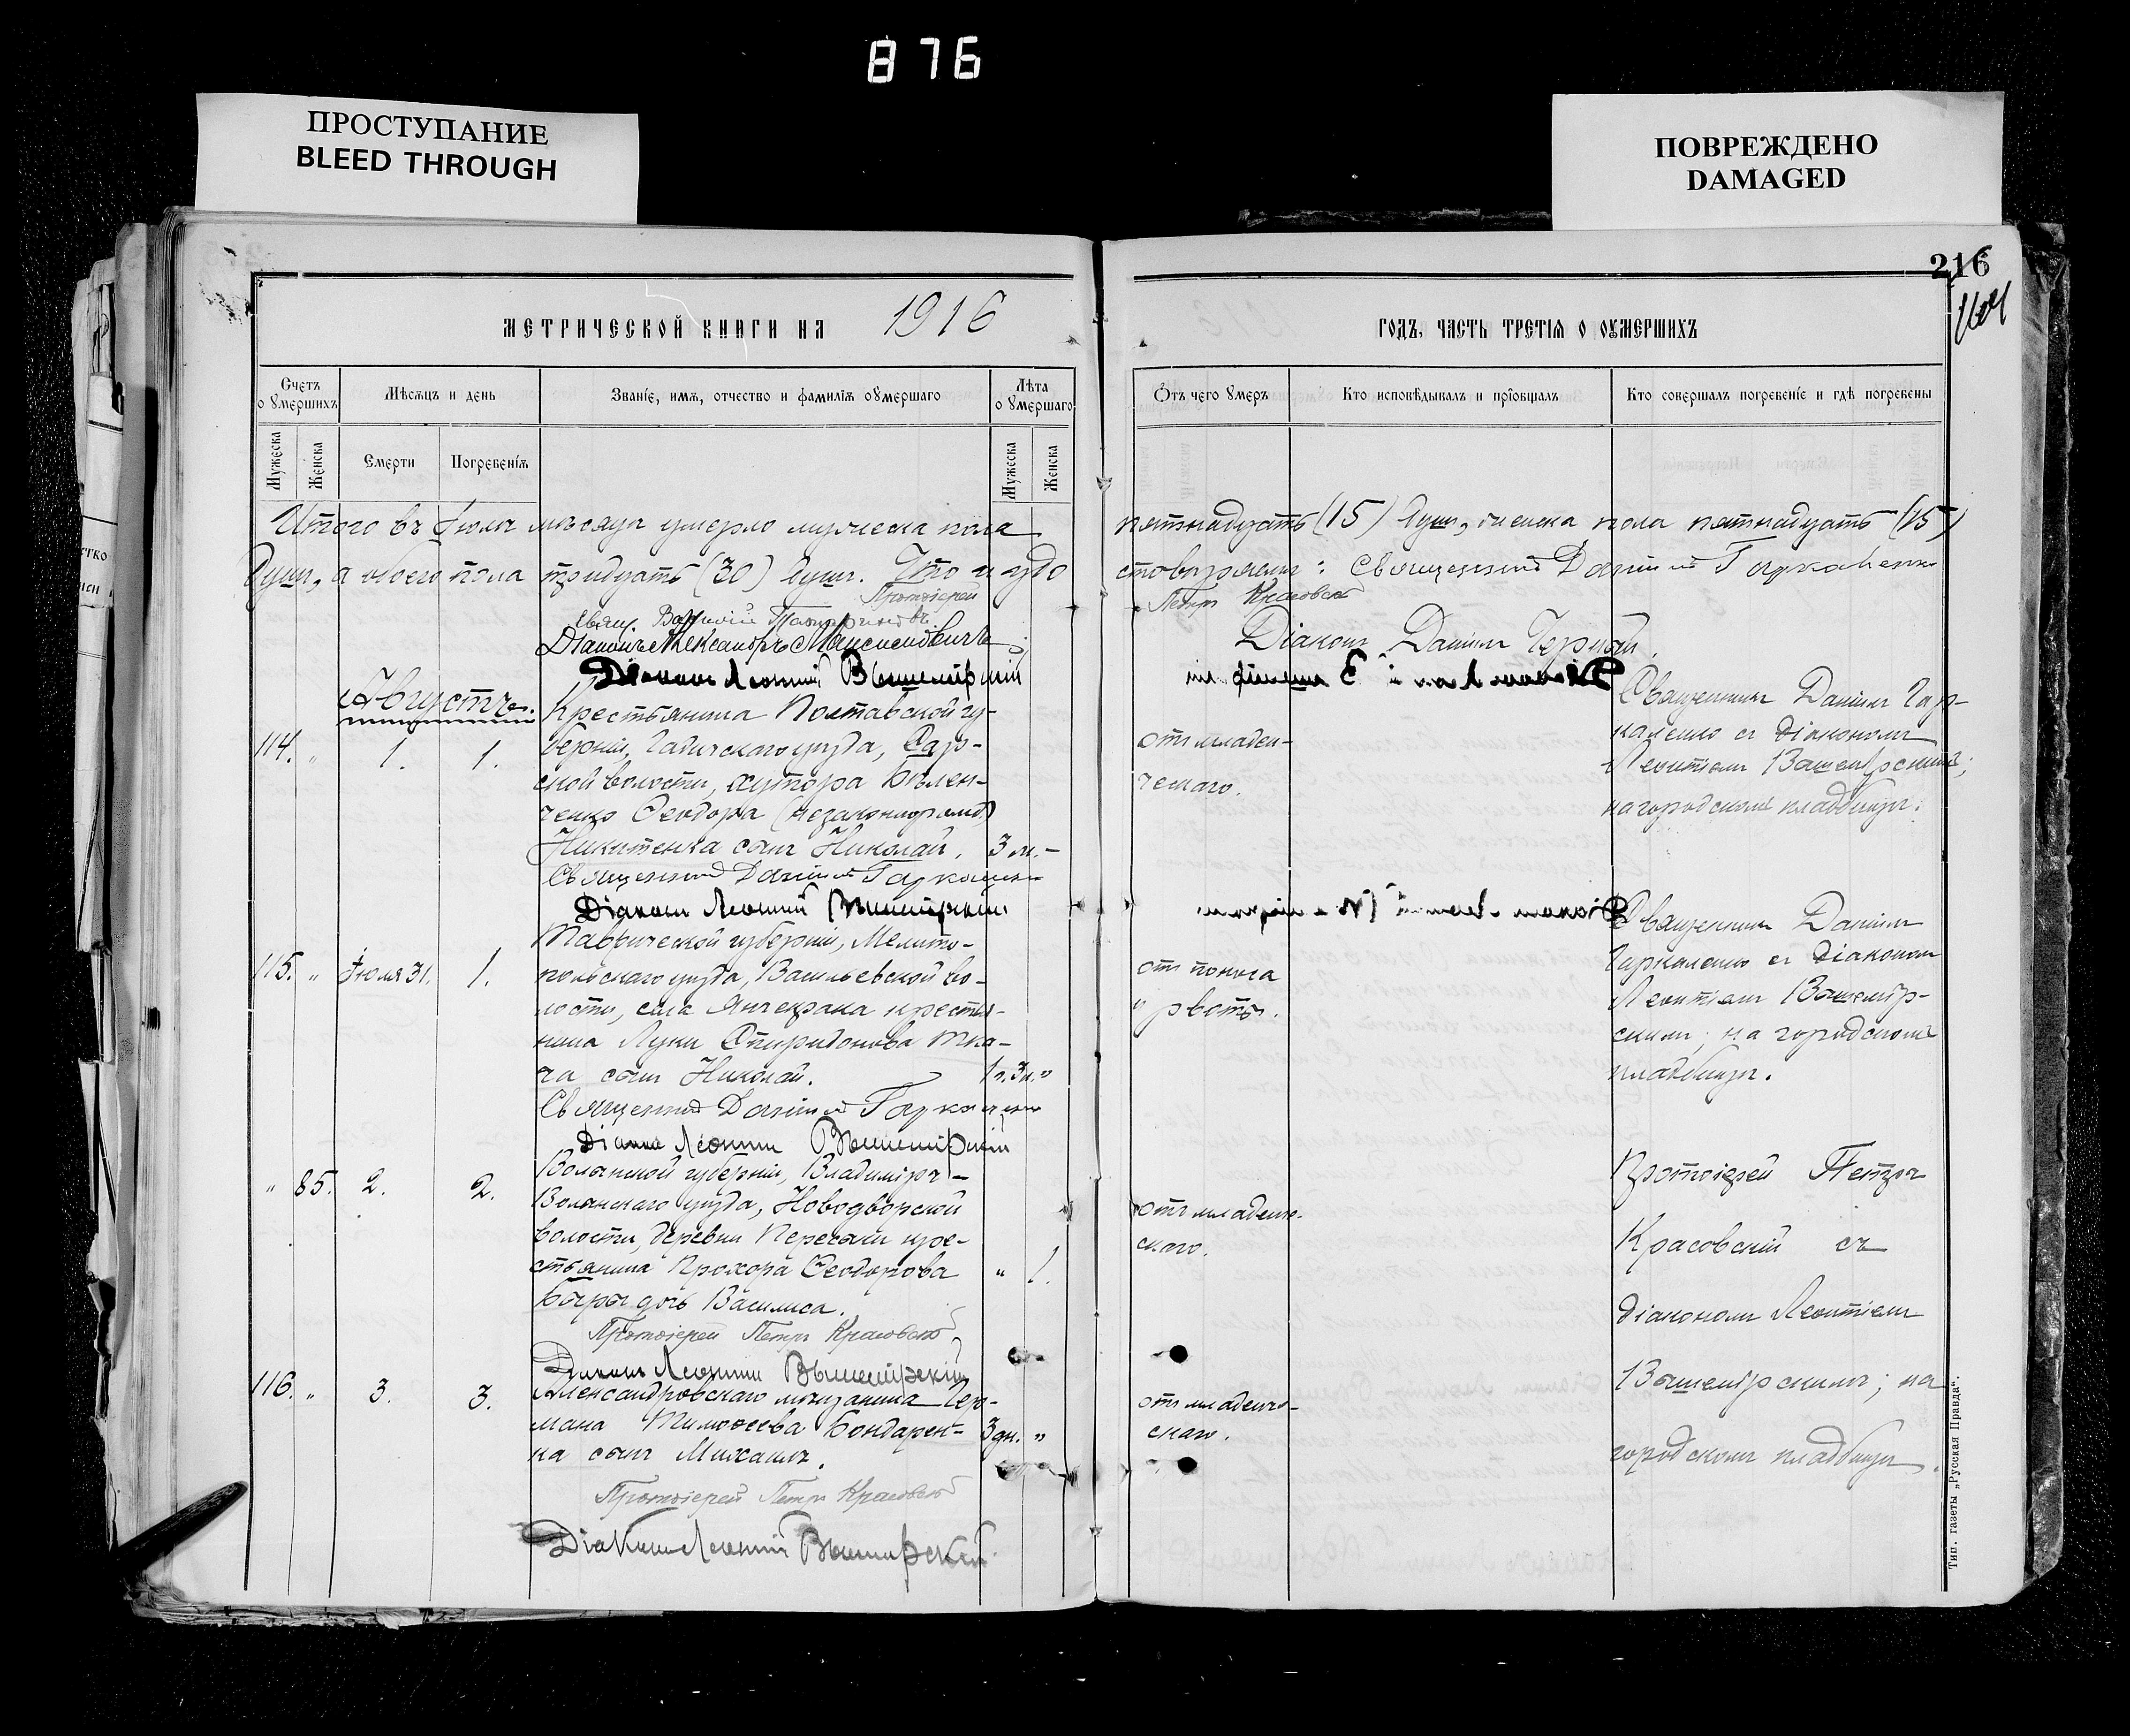 876
ПРОСТУПАНИЕ
BLEED THROUGH
ПОВРЕЖДЕНО
DAMAGED
216
МЕТРИЧЕСКОЙ КНИГИ НА 1916
ГОДЪ, ЧАСТЬ ТРЕТІЯ О ОУМЕРШИХЪ
Счетъ о умершихъ
Мѣсяцъ и день
Званіе, имя, отчество и фамилія оумершаго
Лѣта о умершаго
Отъ чего умеръ
Кто исповѣдывалъ и пріобщалъ
Кто совершалъ погребеніе и гдѣ погребены
Мужеска
Женска
Смерти
Погребенія
Мужеска
Женска
Итого въ Іюлѣ мѣсяцѣ умерло мужеска пола
пятнадцать (15) душъ, женска пола пятнадцать (15)
душъ, а обоего пола тридцать (30) душъ. Что и удо
стовѣряемъ: Священникъ Даніилъ Гаркаленко
Протоіерей
Петръ Красовскій
Свящ.
Діаконъ Александръ
Діаконъ Даніилъ Черный.
Діаконъ Леонтій Вышемірскій
Августъ.
114. " 1. 1.
Крестьянина Полтавской гу-
берніи, Гадячскаго уѣзда, Сар-
ской волости, хутора Бѣлен-
ченко Ѳеодора (незаконнорожд.)
Никитенка сынъ Николай. 3 м. -
отъ младен-
ческаго.
Священникъ Даніилъ Гар-
каленко съ діакономъ
Леонтіемъ Вышемірскимъ;
на городскомъ кладбищѣ.
Священникъ Даніилъ Гаркаленко
Діаконъ Леонтій Вышемірскій
115. " Іюля 31. 1.
Таврической губерніи, Мелито-
польскаго уѣзда, Васильевской во-
лости, села Янчекрака крестья-
нина Луки Спиридонова Тка-
ча сынъ Николай. 1 г. 3 м. "
отъ поноса
и рвоты.
Священникъ Даніилъ
Гаркаленко съ діакономъ
Леонтіемъ Вышемір-
скимъ; на городскомъ
кладбищѣ.
Священникъ Даніилъ Гаркаленко
Діаконъ Леонтій Вышемірскій
" 85. 2. 2.
Волынской губерніи, Владиміръ-
Волынскаго уѣзда, Новодворской
волости, деревни Переспы кре-
стьянина Прохора Ѳеодорова
дочь Василиса. " 1.
отъ младенче-
скаго.
Протоіерей Петръ
Красовскій съ
діакономъ Леонтіемъ
Вышемірскимъ; на
городскомъ кладбищѣ.
Протоіерей Петръ Красовскій
Діаконъ Леонтій Вышемірскій
116. " 3. 3.
Александровскаго мѣщанина Гер-
мана Тимоѳеева Бондарен-
ка сынъ Михаилъ. 3 дн. "
отъ младенче-
скаго.
Протоіерей Петръ Красовскій
Діаконъ Леонтій Вышемірскій
Тип. газеты „Русская Правда“.